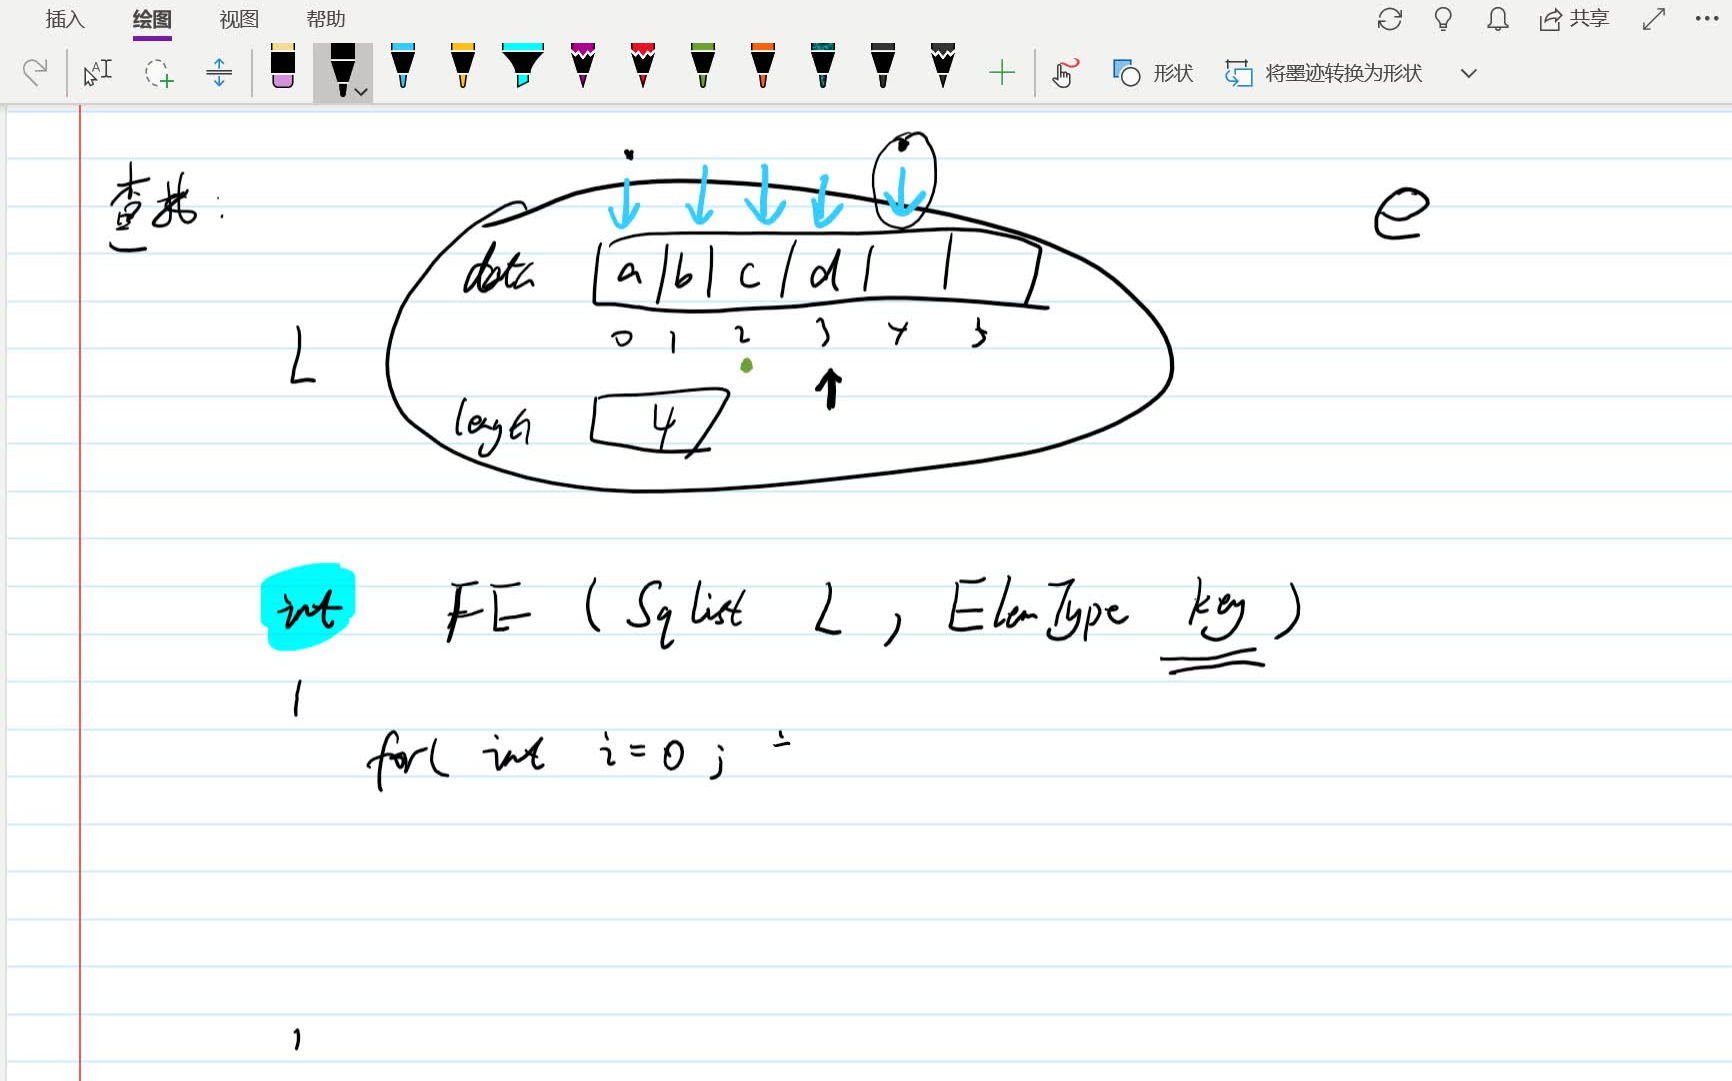 插入 绘图 视图 帮助 共享
形状 将墨迹转换为形状
查找:
e
data a b c d
0 1 2 3 4 5
L
length 4
int FE ( Sqlist L , ElemType key )
for( int i=0 ; i